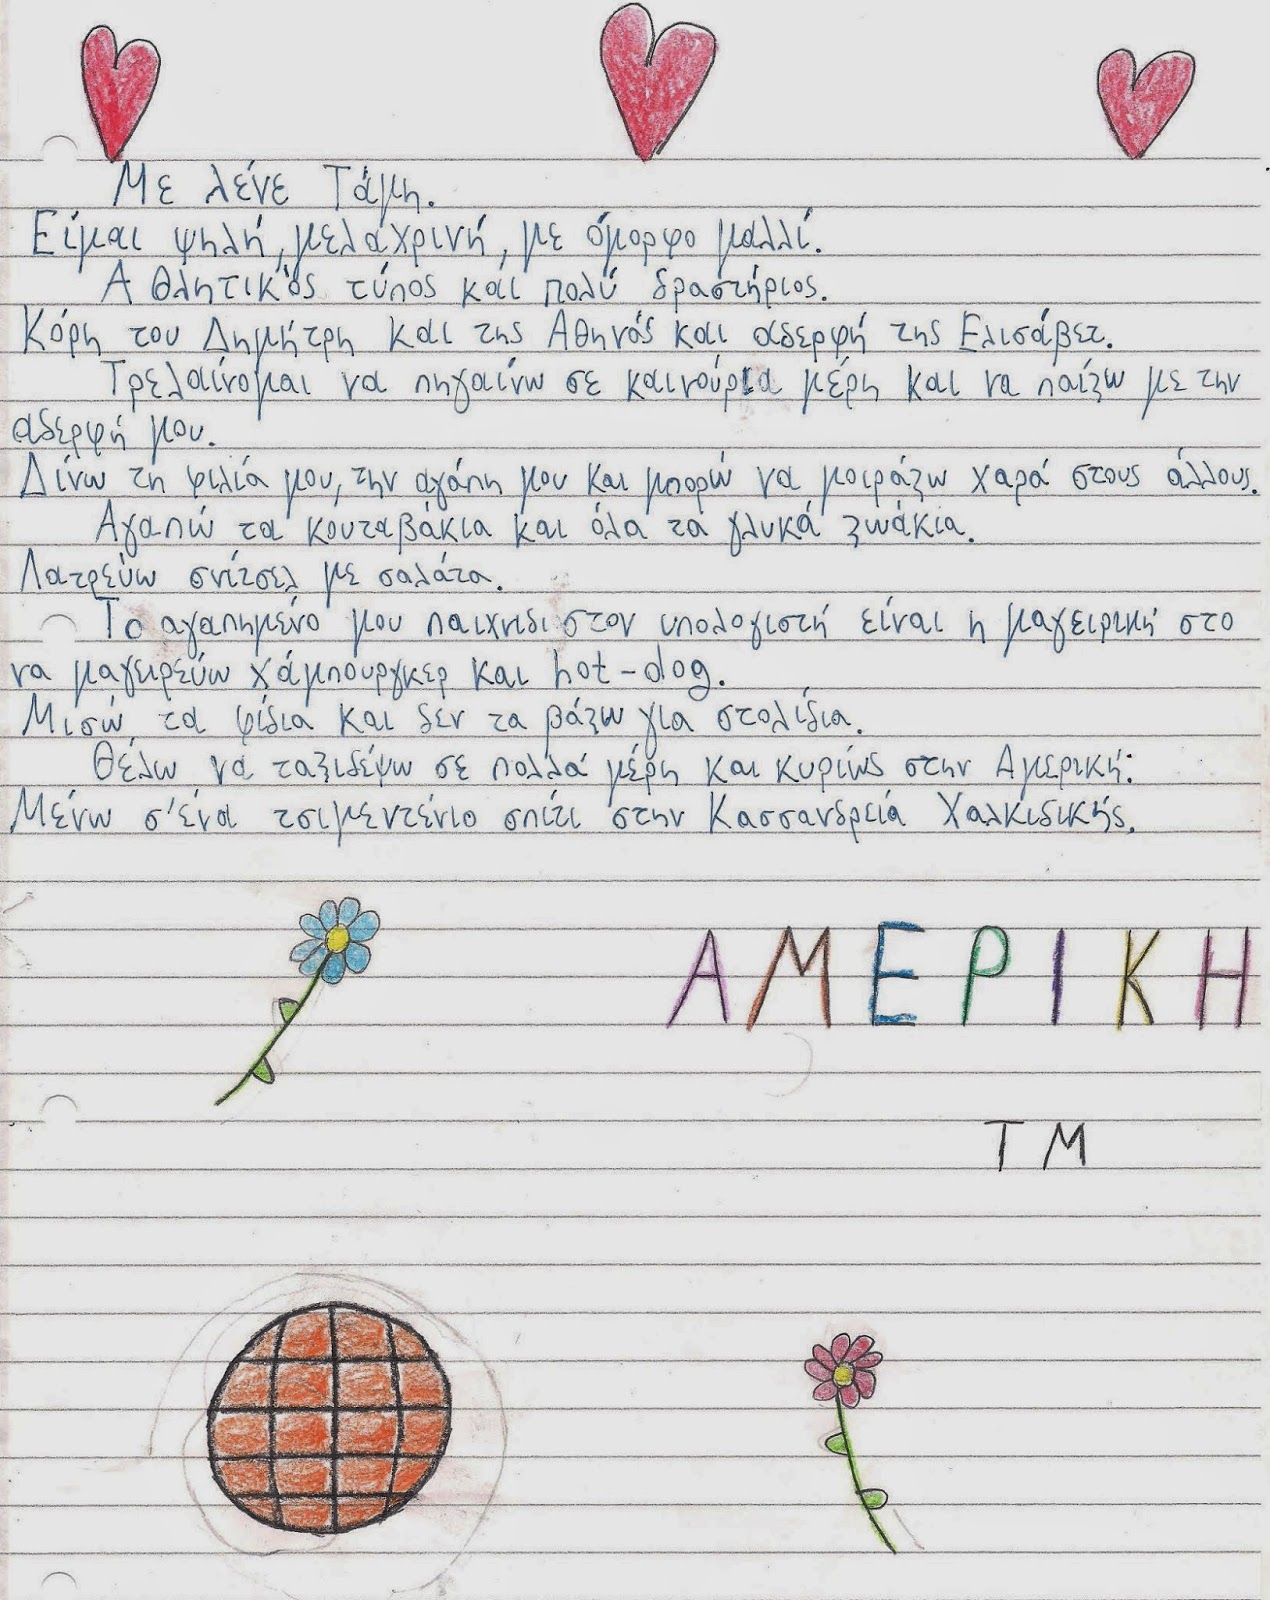 Με λένε Τάμη.
Είμαι ψηλή, μελαχρινή, με όμορφο μαλλί.
Αθλητικός τύπος και πολύ δραστήριος.
Κόρη του Δημήτρη και της Αθηνάς και αδερφή της Ελισάβετ.
Τρελαίνομαι να πηγαίνω σε καινούρια μέρη και να παίζω με την
αδερφή μου.
Δίνω τη φιλία μου, την αγάπη μου και μπορώ να μοιράζω χαρά στους άλλους.
Αγαπώ τα κουταβάκια και όλα τα γλυκά ζωάκια.
Λατρεύω σνίτσελ με σαλάτα.
Το αγαπημένο μου παιχνίδι στον υπολογιστή είναι η μαγειρική στο
να μαγειρεύω χάμπουργκερ και hot-dog.
Μισώ τα φίδια και δεν τα βάζω για στολίδια.
Θέλω να ταξιδέψω σε πολλά μέρη και κυρίως στην Αμερική:
Μένω σ'ένα τσιμεντένιο σπίτι στην Κασσανδρεία Χαλκιδικής.
ΑΜΕΡΙΚΗ
ΤΜ